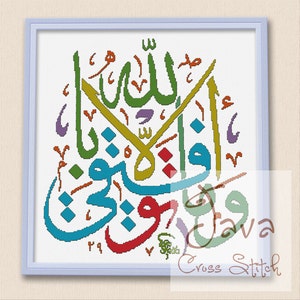 وما توفيقي إلا بالله
٢٩ ٧
Java
Cross Stitch